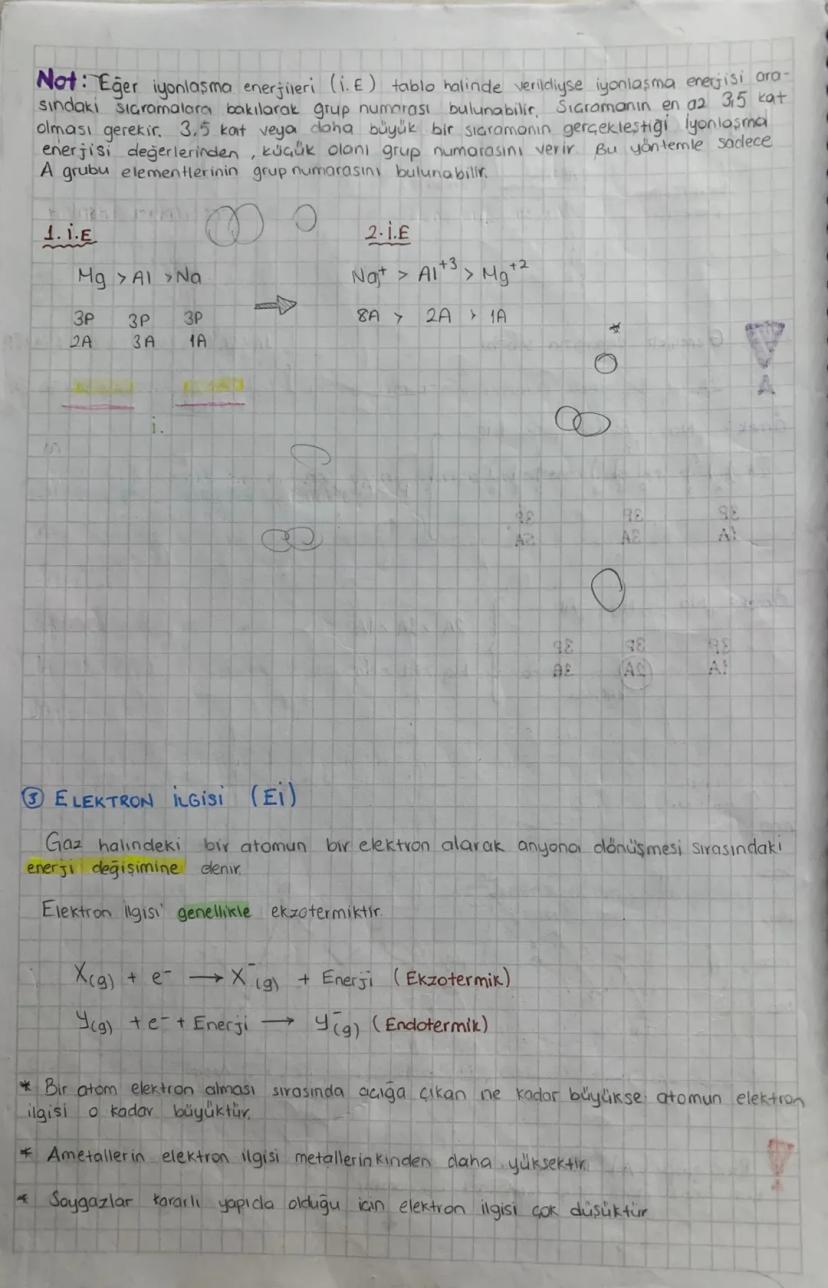 Not: Eğer iyonlaşma enerjileri (İ.E) tablo halinde verildiyse iyonlaşma enerjisi ara-
sındaki sıçramalara bakılarak grup numarası bulunabilir. Sıçramanın en az 3,5 kat
olması gerekir. 3,5 kat veya daha büyük bir sıçramanın gerçekleştiği iyonlaşma
enerjisi değerlerinden, küçük olanı grup numarasını verir. Bu yöntemle sadece
A grubu elementlerinin grup numarasını bulunabilir.
1. İ.E 2. İ.E
Mg > Al > Na Na⁺ > Al⁺³ > Mg⁺²
3P 3P 3P 8A > 2A > 1A
2A 3A 1A
i.
③ ELEKTRON İLGİSİ (Eİ)
Gaz halindeki bir atomun bir elektron alarak anyona dönüşmesi sırasındaki
enerji değişimine denir.
Elektron ilgisi genellikle ekzotermiktir.
X(g) + e⁻ → X⁻(g) + Enerji (Ekzotermik)
Y(g) + e⁻ + Enerji → Y⁻(g) (Endotermik)
* Bir atom elektron alması sırasında açığa çıkan ne kadar büyükse atomun elektron
ilgisi o kadar büyüktür.
* Ametallerin elektron ilgisi metallerinkinden daha yüksektir.
* Soygazlar kararlı yapıda olduğu için elektron ilgisi çok düşüktür